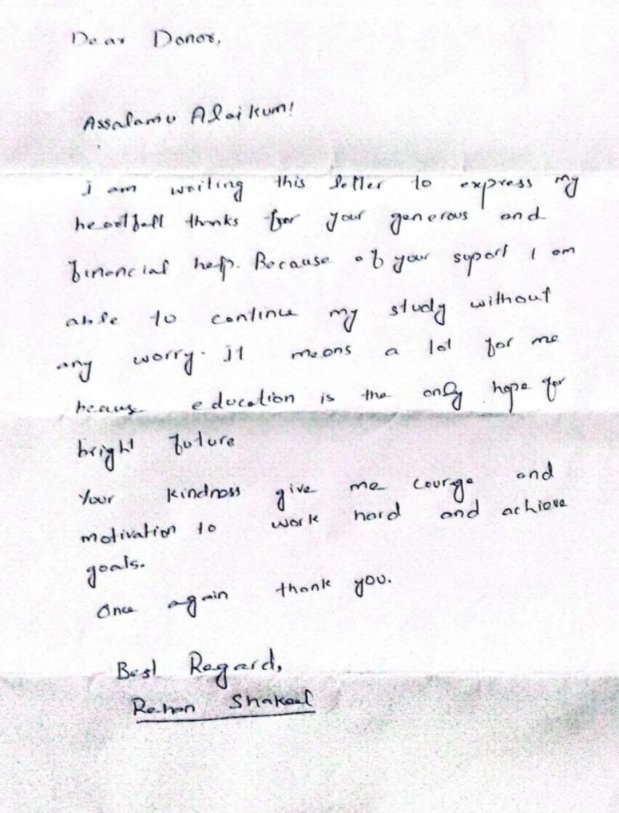 Dear Donor,
Assalamu Alaikum!
I am writing this letter to express my
heartfelt thanks for your generous and
financial help. Because of your suport I am
able to continue my study without
any worry. It means a lot for me
beaus education is the only hope for
bright future
Your kindness give me courge and
motivation to work hard and achieve
goals.
Once again thank you.
Best Regard,
Rehan Shakeel